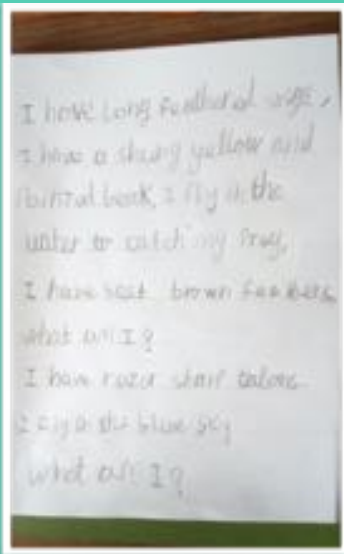 I have long feathered wings,
I have a sharp yellow and
Pointed beak, I fly in the
water to catch my Pray,
I have brown feathers
what am I?
I have razor talons
I in the blue sky
What am I?